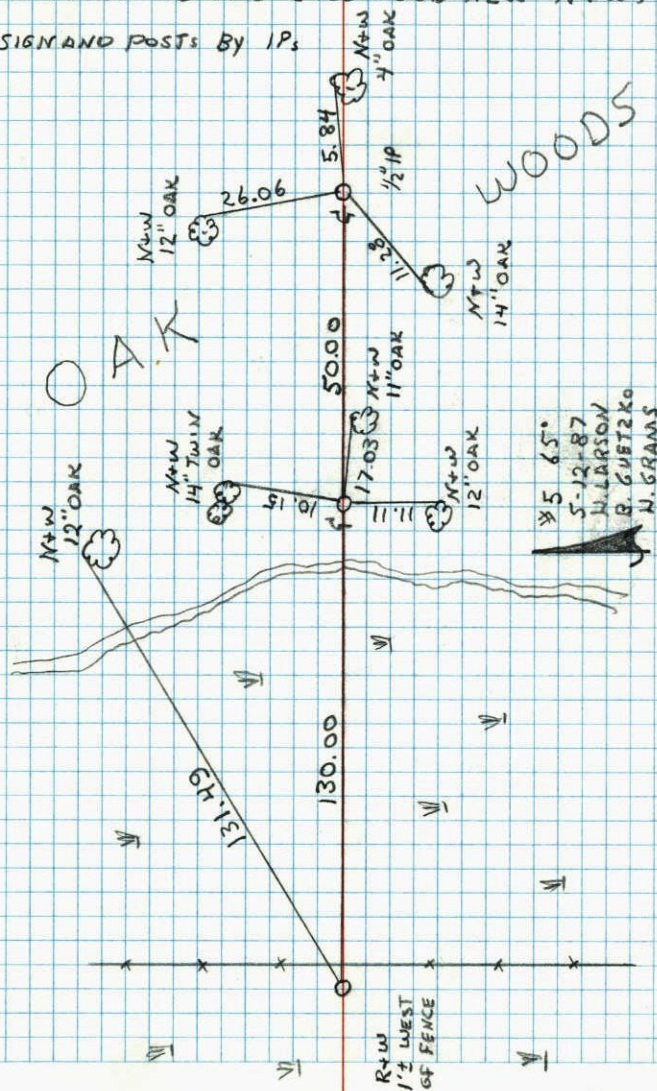 SIGN AND POSTS BY IPs
N+W
4" OAK
5.84
1/2" IP
N+W
12" OAK
26.06
11.28
N+W
14" OAK
WOODS
OAK
50.00
N+W
11" OAK
17.03
N+W
14" TWIN
OAK
10.15
11.11
N+W
12" OAK
N+W
12" OAK
#5 65°
5-12-87
W. LARSON
B. GUETZKO
W. GRAMS
131.49
130.00
R+W
1'± WEST
OF FENCE